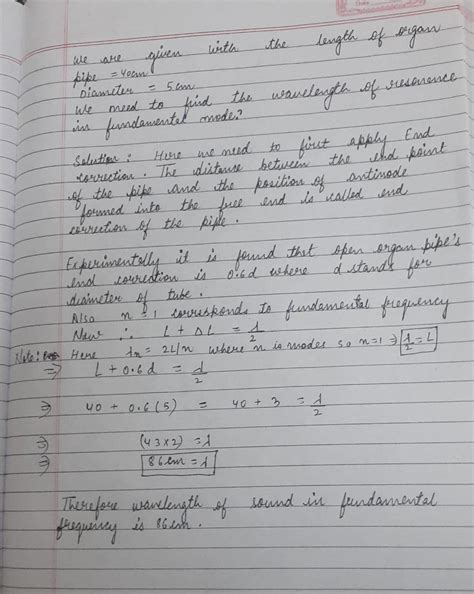 We are given with the length of organ
pipe = 40cm
Diameter = 5cm
We need to find the wavelength of resonance
in fundamental mode?
Solution : Here we need to first apply End
correction. The distance between the end point
of the pipe and the position of antinode
formed into the free end is called end
correction of the pipe.
Experimentally it is found that open organ pipe's
end correction is 0.6d where d stands for
diameter of tube.
Also n = 1 corresponds to fundamental frequency
Now ∴ L + ΔL = λ/2
Note: Here λn = 2L/n where n is modes so n=1 ⇒ λ/2 = L
⇒ L + 0.6d = λ/2
⇒ 40 + 0.6(5) = 40 + 3 = λ/2
⇒ (43x2) = λ
⇒ 86cm = λ
Therefore wavelength of sound in fundamental
frequency is 86cm.